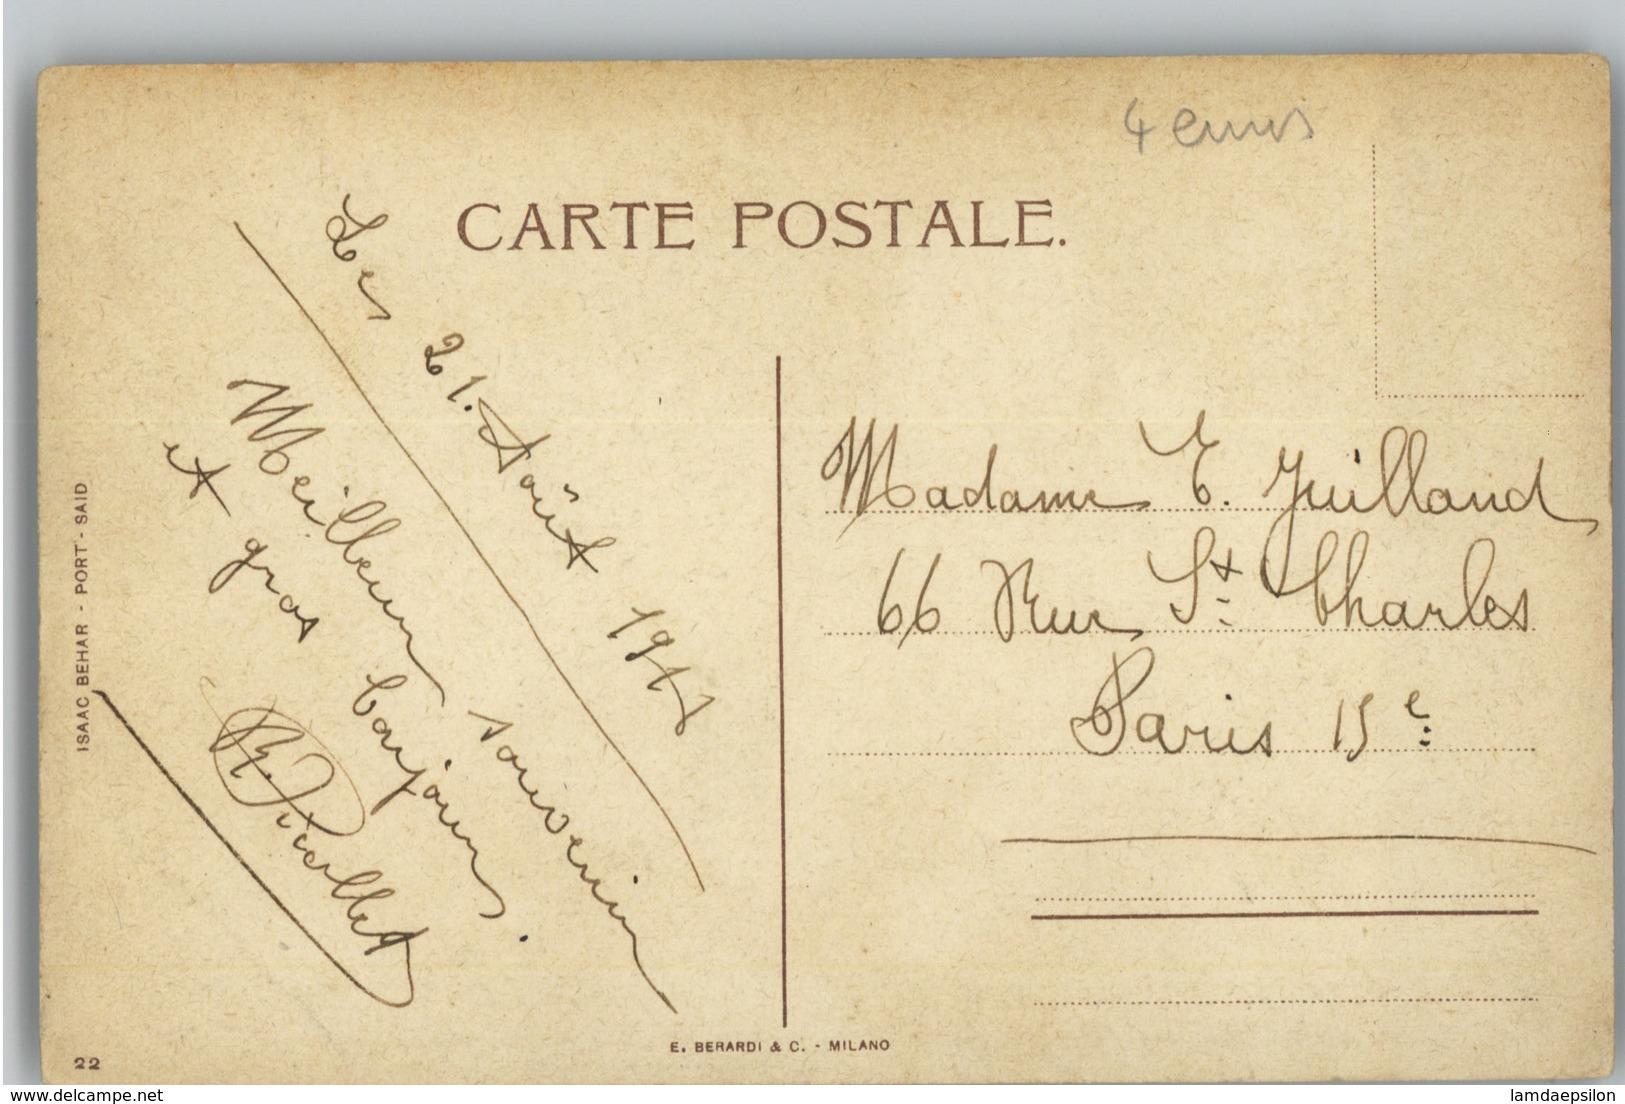 4 euros
CARTE POSTALE.
Les 21. Août
Meilleur souvenir
et gros bonjour.
Madame E. Guilland
66 Rue St. Charles
Paris 15e
ISAAC BEHAR - PORT-SAID
E. BERARDI & C. - MILANO
22
delcampe.net
lamdaepsilon